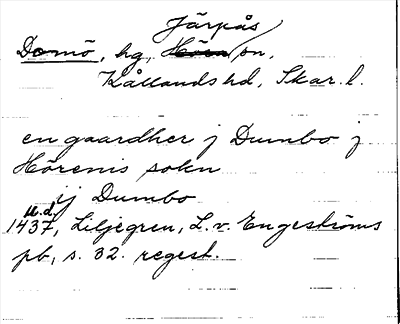 Järpås
Domö, hg, Hören/sn,
Kållands hd, Skar. l.
en gaardher j Dumbo j
Hörenis sokn
ij Dumbo
u.d.
1437, Liljegren, L. v. Engeströms
pb, s. 32. regest.